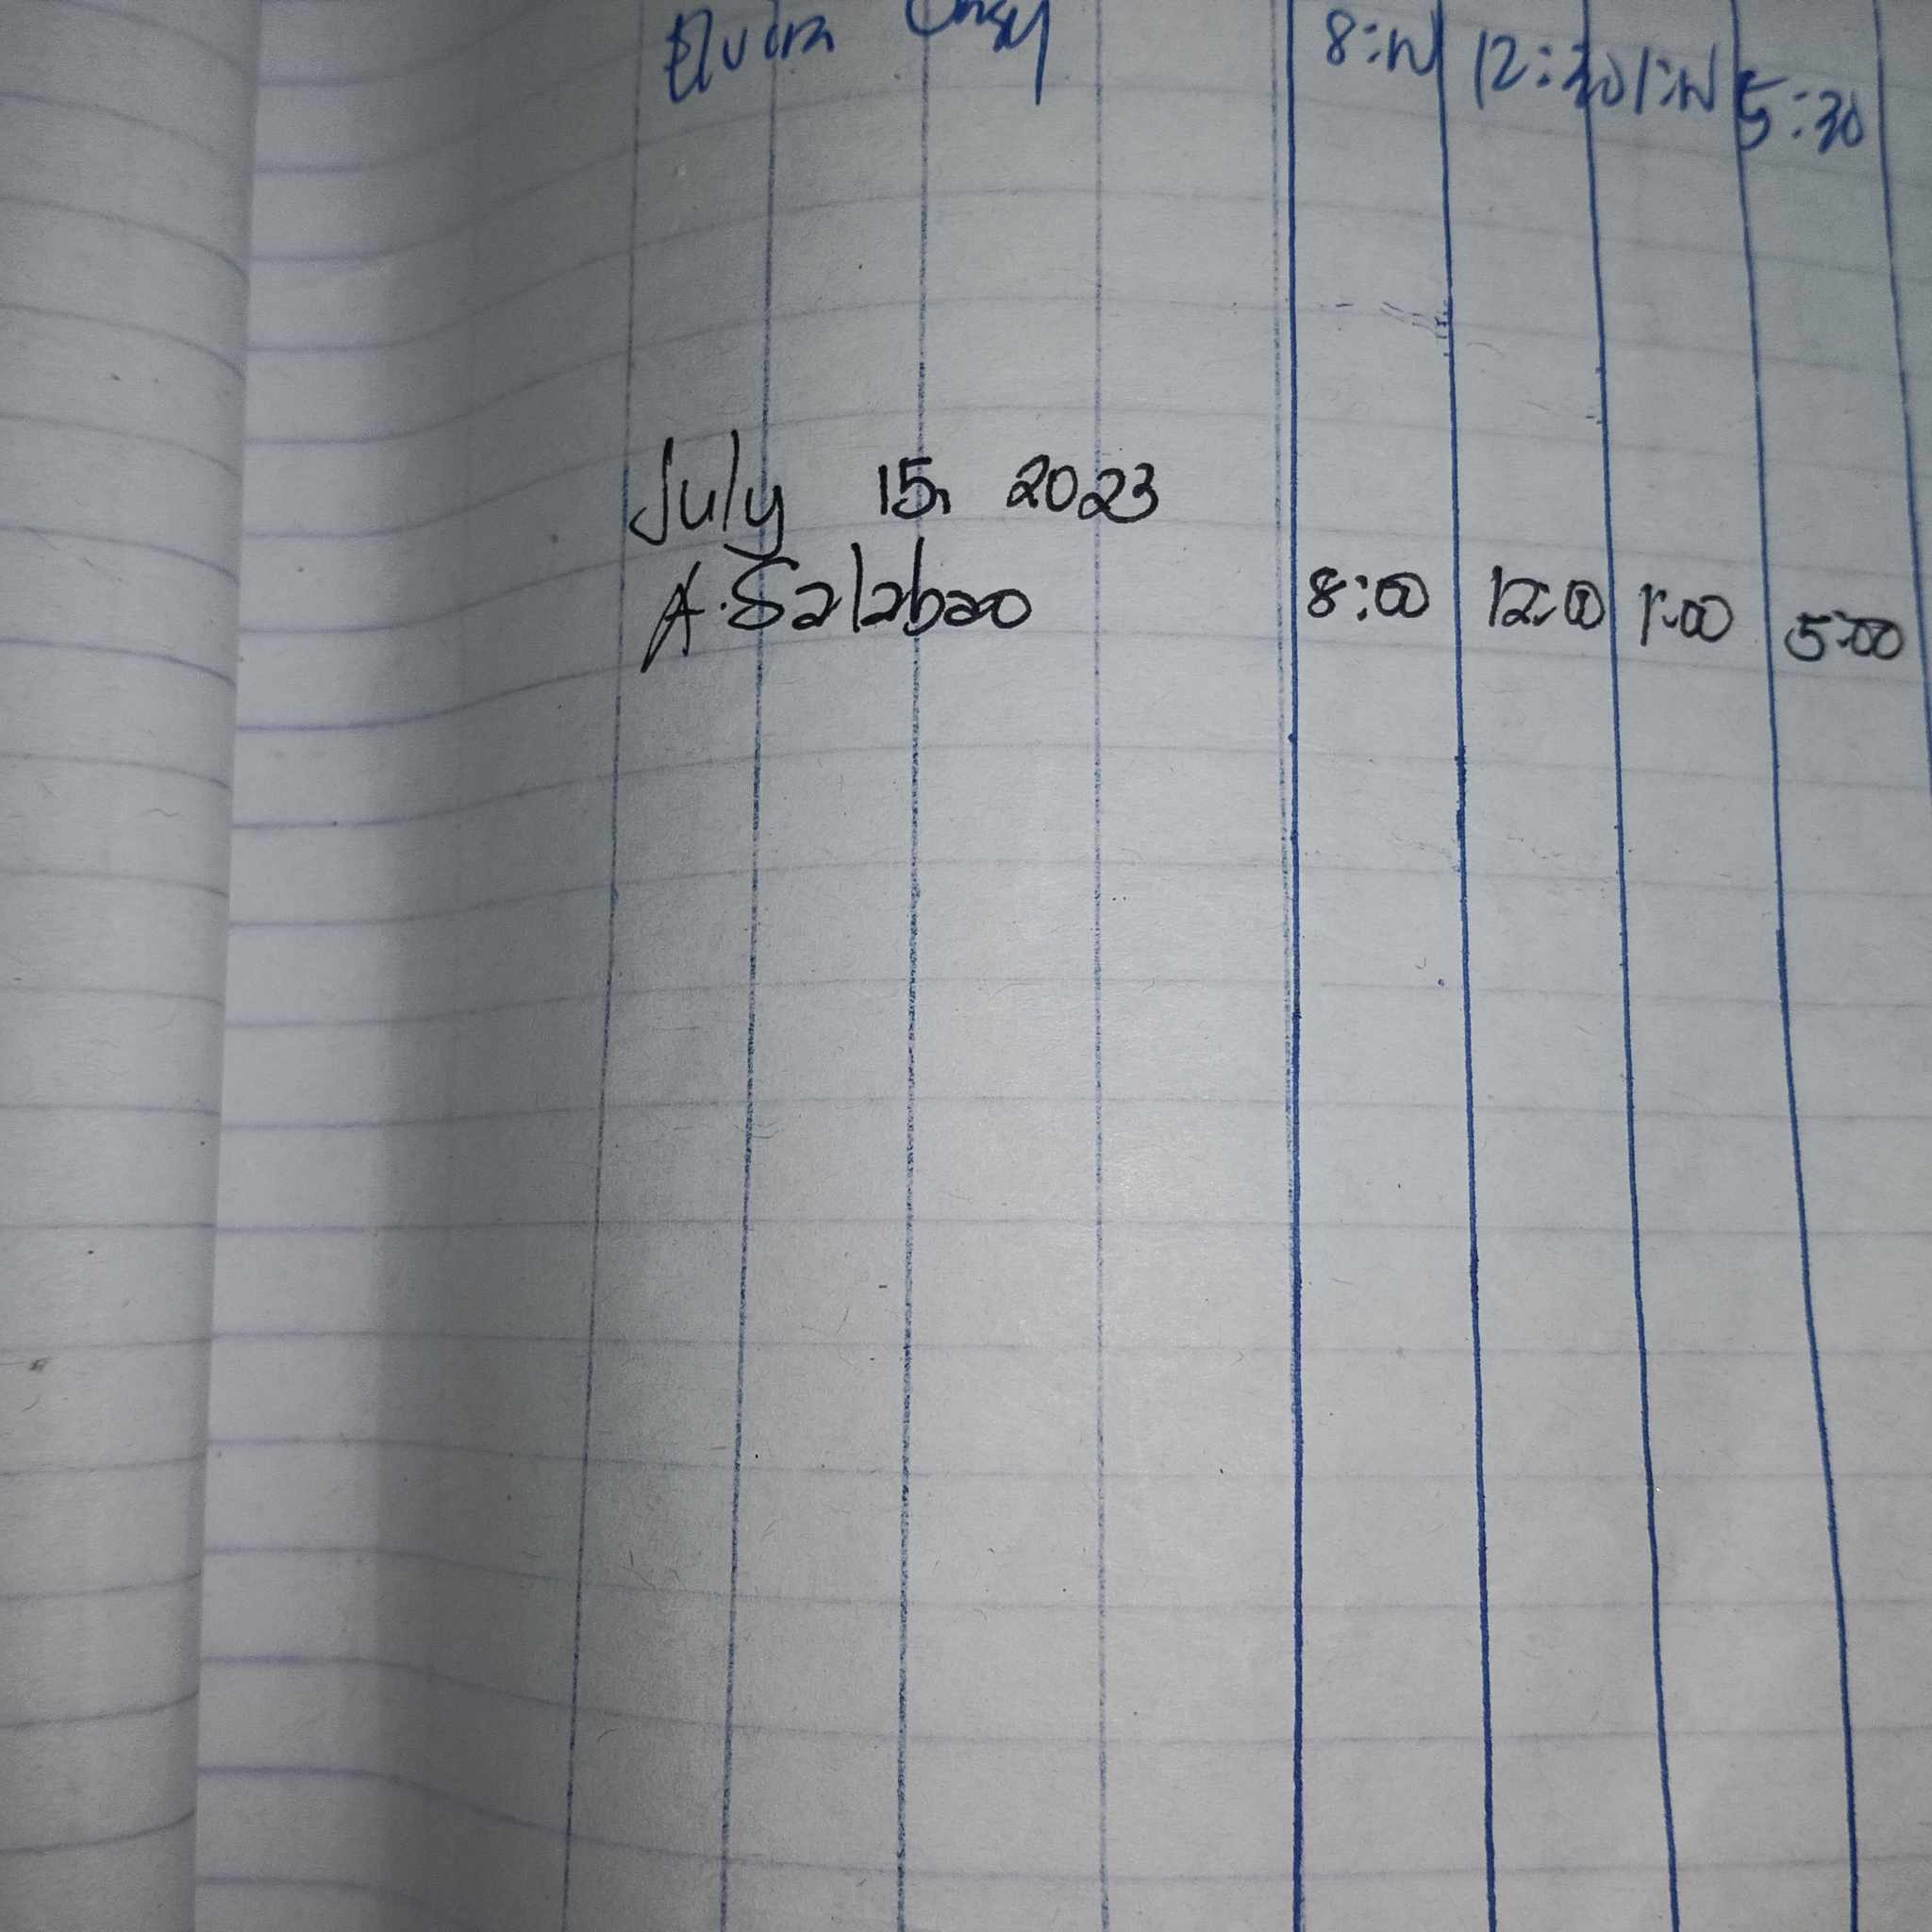 8:00 12:30 1:00 5:30
July 15, 2023
A. Salabao 8:00 12:00 1:00 5:00